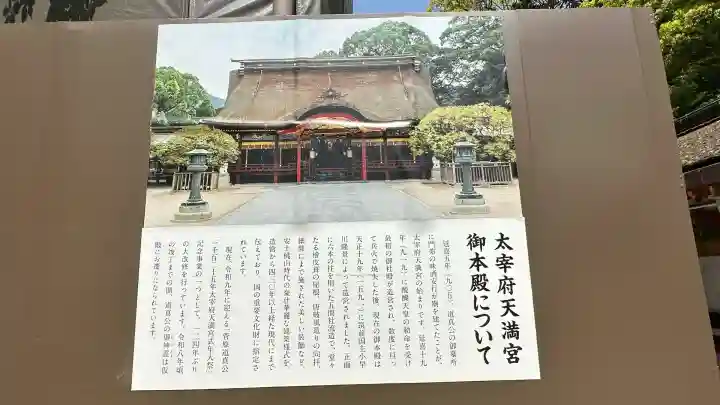 太宰府天満宮
御本殿について
延喜五年(九〇五)、道真公の御墓所
に門弟の味酒安行が祠を建てたことが、
太宰府天満宮の始まりです。延喜十九
年(九一九)に醍醐天皇の勅命を受け
最初の御社殿が造営され、数度に亘っ
て兵火で焼失した後、現在の御本殿は
天正十九年(一五九一)に筑前国主小早
川隆景によって造営されました。正面
に六本の柱を用いた五間社流造で、堂々
たる檜皮葺の屋根、唐破風造りの向拝、
細部にまで施された美しい装飾など、
安土桃山時代の豪壮華麗な建築様式を、
造営から四三〇年以上経た現代にまで
伝えており、国の重要文化財に指定さ
れています。
現在、令和九年に迎える「菅原道真公
一千百二十五年太宰府天満宮式年大祭」
記念事業の一つとして、一二四年ぶり
の大改修を行っています。令和八年頃
の竣工までの間、道真公の御神霊は仮
殿にお遷りになられています。